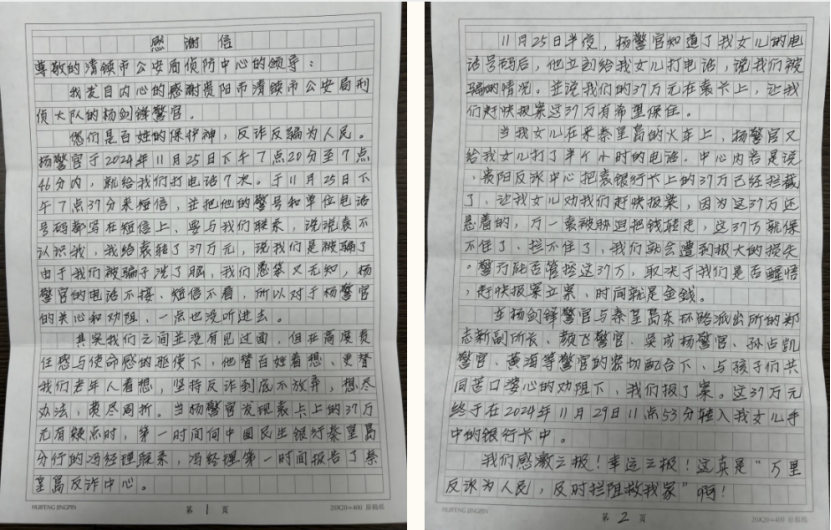 感谢信
尊敬的清镇市公安局侦防中心的领导：
我发自内心的感谢贵阳市清镇市公安局刑
侦大队的杨剑锋警官。
您们是百姓的保护神，反诈反骗为人民。
杨警官于2024年11月25日下午7点20分至7点
46分内，就给我们打电话7次。于11月25日下
午7点37分来短信，并把他的警号和单位电话
号码都写在短信上，要与我们联系，说说袁不
认识我，我给袁转了37万元，说我们是被骗了
由于我们被骗子洗了脑，我们愚笨又无知，杨
警官的电话不接、短信不看，所以对于杨警官
的关心和劝阻，一点也没听进去。
其实我们之间並没有见过面，但在高度责
任感与使命感的驱使下，他替百姓着想、更替
我们老年人着想，坚持反诈到底不放弃，想尽
办法，费尽周折。当杨警官发现袁卡上的37万
元有疑点时，第一时间向中国民生银行秦皇岛
分行的冯经理联系，冯经理第一时间报告了秦
皇岛反诈中心。
第 1 页
HUIFENG JINGPIN
20X20=400 原稿纸
11月25日半夜，杨警官知道了我女儿的电
话号码后，他立刻给我女儿打电话，说我们被
骗的情况。並说我们的37万元在袁卡上，让我
们赶快报案这37万有希望保住。
当我女儿在来秦皇岛的火车上，杨警官又
给我女儿打了半个小时的电话。中心内容是说
，贵阳反诈中心把袁银行卡上的37万已经拦截
了，让我女儿对我们赶快报案，因为这37万还
悬着的，万一袁被胁迫把钱转走，这37万就保
不住了、拦不住了，我们就会遭到极大的损失
。警方能否管控这37万，取决于我们是否醒悟
，赶快报案立案，时间就是金钱。
在杨剑锋警官与秦皇岛东环路派出所的郑
志新副所长、魏飞警官、梁成杨警官、孙占凯
警官、黄海等警官的密切配合下，与孩子们共
同苦口婆心的劝阻下，我们报了案。这37万元
终于在2024年11月29日11点53分转入我女儿手
中的银行卡中。
我们感激之极！幸运之极！这真是“万里
反诈为人民，及时拦阻救我家”啊！
第 2 页
HUIFENG JINGPIN
20X20=400 原稿纸